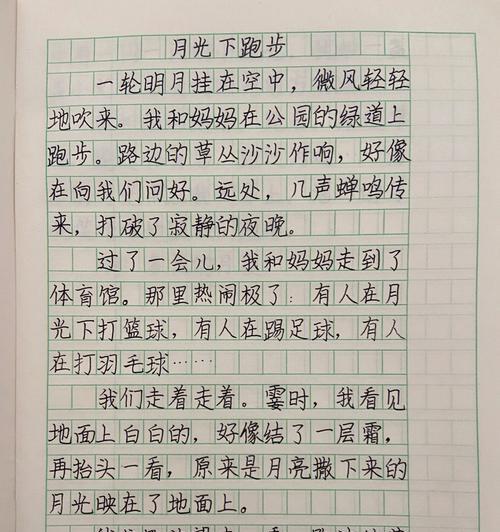 月光下跑步
一轮明月挂在空中，微风轻轻
地吹来。我和妈妈在公园的绿道上
跑步。路边的草丛沙沙作响，好像
在向我们问好。远处，几声蝉鸣传
来，打破了寂静的夜晚。
过了一会儿，我和妈妈走到了
体育馆。那里热闹极了：有人在月
光下打篮球，有人在踢足球，有人
在打羽毛球……
我们走着走着。霎时，我看见
地面上白白的，好像结了一层霜，
再抬头一看，原来是月亮撒下来的
月光映在了地面上。